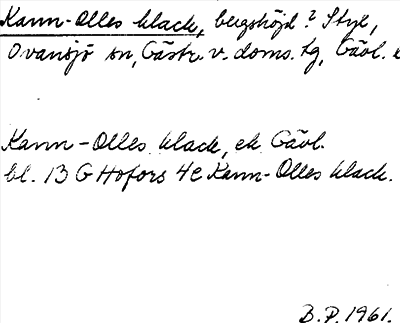 Kann-Olles klack, bergshöjd? Styr,
Ovansjö sn, Gästr. v. doms. tg, Gävl.
Kann-Olles klack, ek Gävl.
bl. 13 G Hofors 4e Kann-Olles klack.
B.P. 1961.